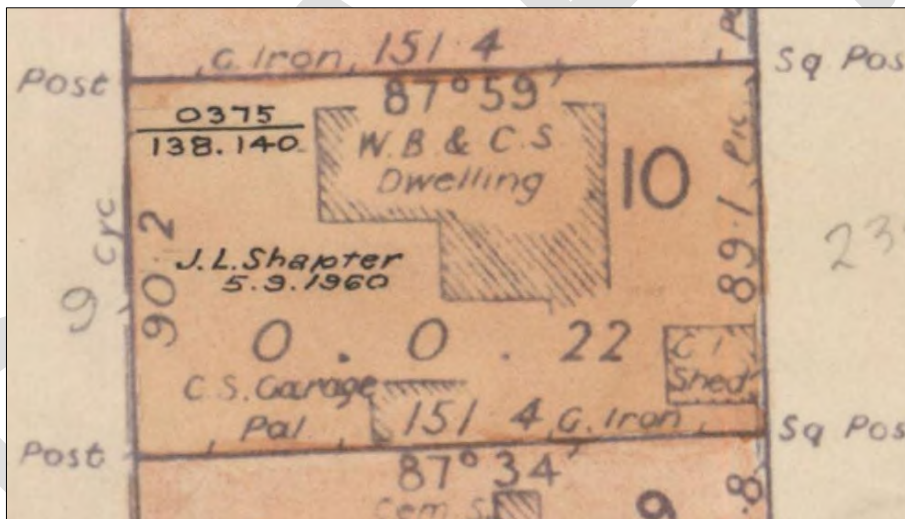 G. Iron 151 4
Post
Sq Pos
87°59'
0375
138.140
W.B & C.S
Dwelling
10
Pic
89·1
90 2
cyc
9
J.L. Shapter
5.9.1960
23
0 . 0 . 22
C I
Shed
C.S. Garage
Pal
151 4 G. Iron
Post
Sq Pos
87°34'
Cem. S.
9
.8